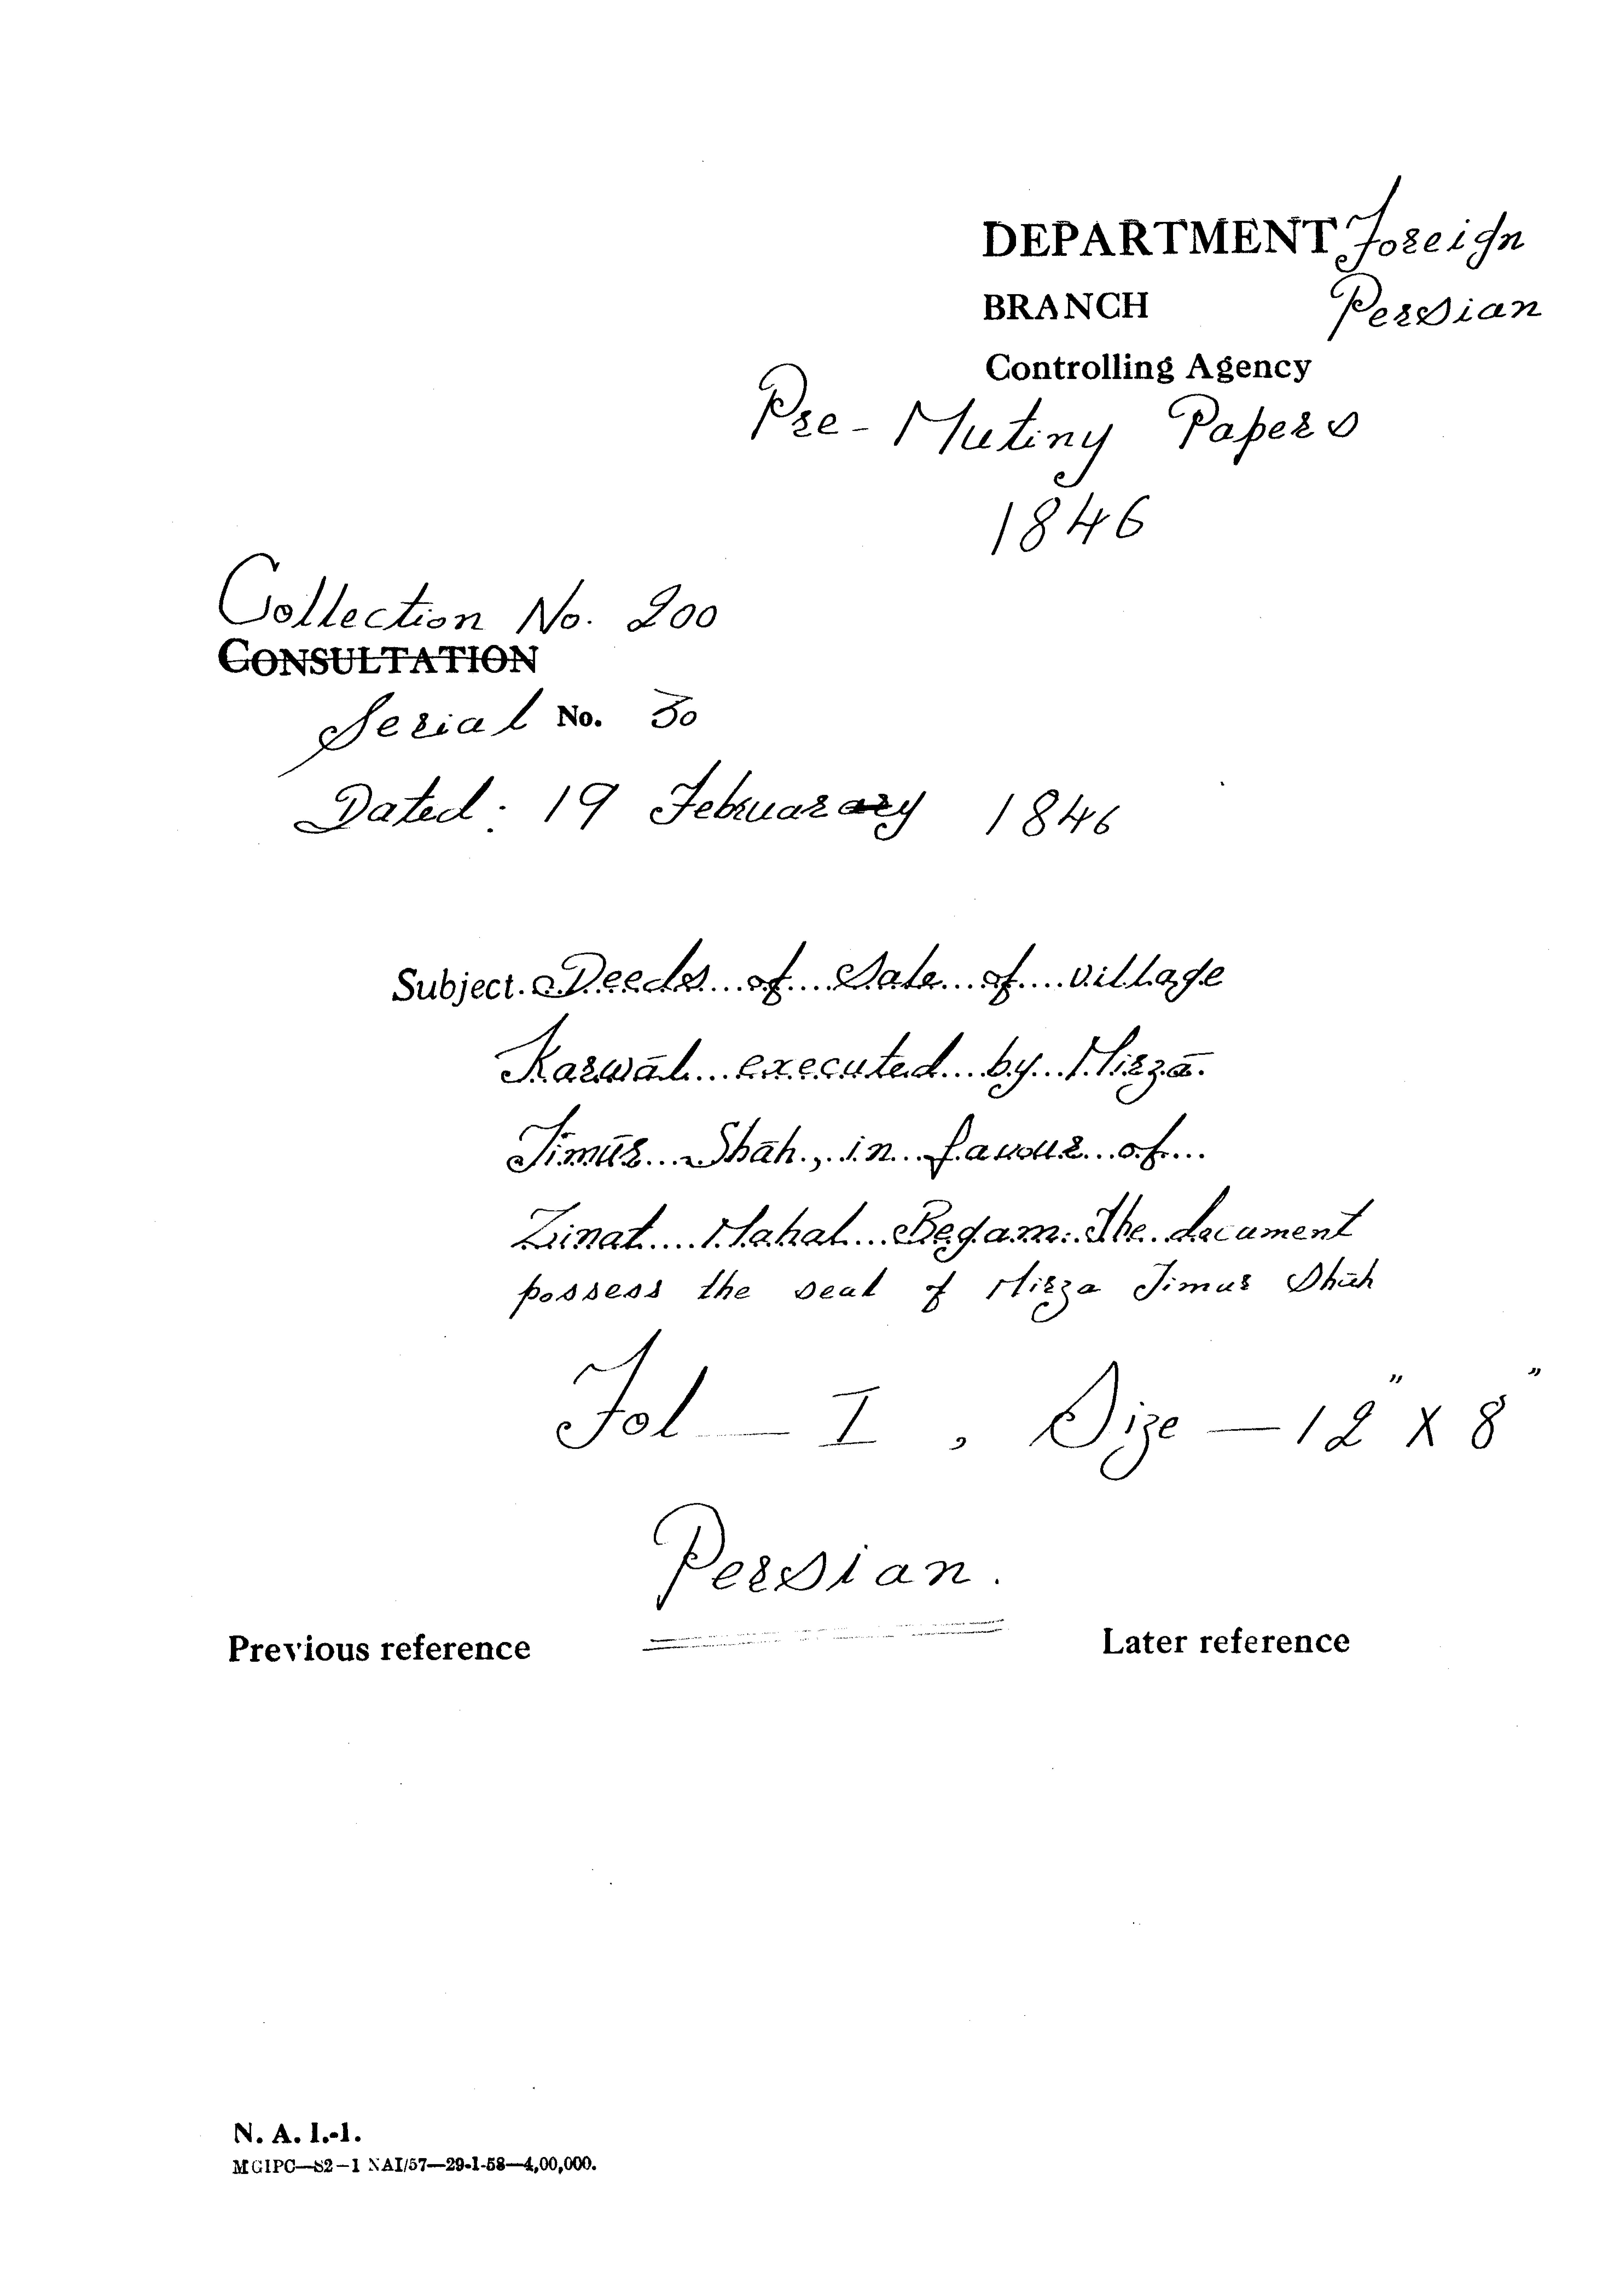 DEPARTMENT Foreign
BRANCH Persian
Controlling Agency
Pre-Mutiny Papers
1846
Collection No. 200
CONSULTATION
Serial No. 30
Dated: 19 Februarary 1846
Subject. Deeds of Sale of village
Karwāl executed by Mirzā
Timūr Shāh, in favour of
Zinat Mahal Begam. The document
possess the seal of Mirza Timur Shāh
Fol — I, Size — 12" X 8"
Persian.
Previous reference Later reference
N. A. I.-1.
MGIPC—S2—1 NAI/57—29-1-58—4,00,000.